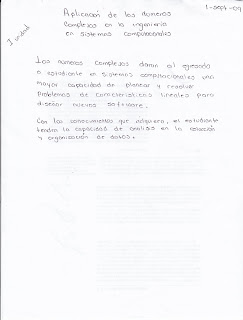 1-sept-09
Aplicación de los números
Complejos en la ingenieria
en sistemas computacionales
I unidad
Los números complejos daran al egresado
o estudiante en sistemas computacionales una
mayor capacidad de plantear y resolver
problemas de caracteristicas lineales para
diseñar nuevos software.
Con los conocimientos que adquiera, el estudiante
tendra la capacidad de analisis en la colección
y organización de datos.